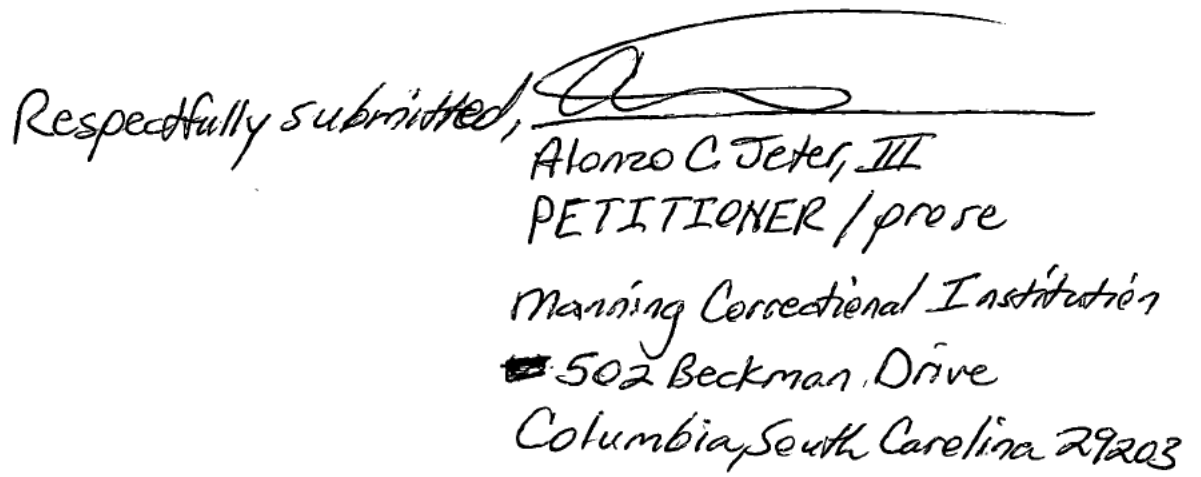 Respectfully submitted,
Alonzo C. Jeter, III
PETITIONER / prose
Manning Correctional Institution
502 Beckman Drive
Columbia, South Carolina 29203